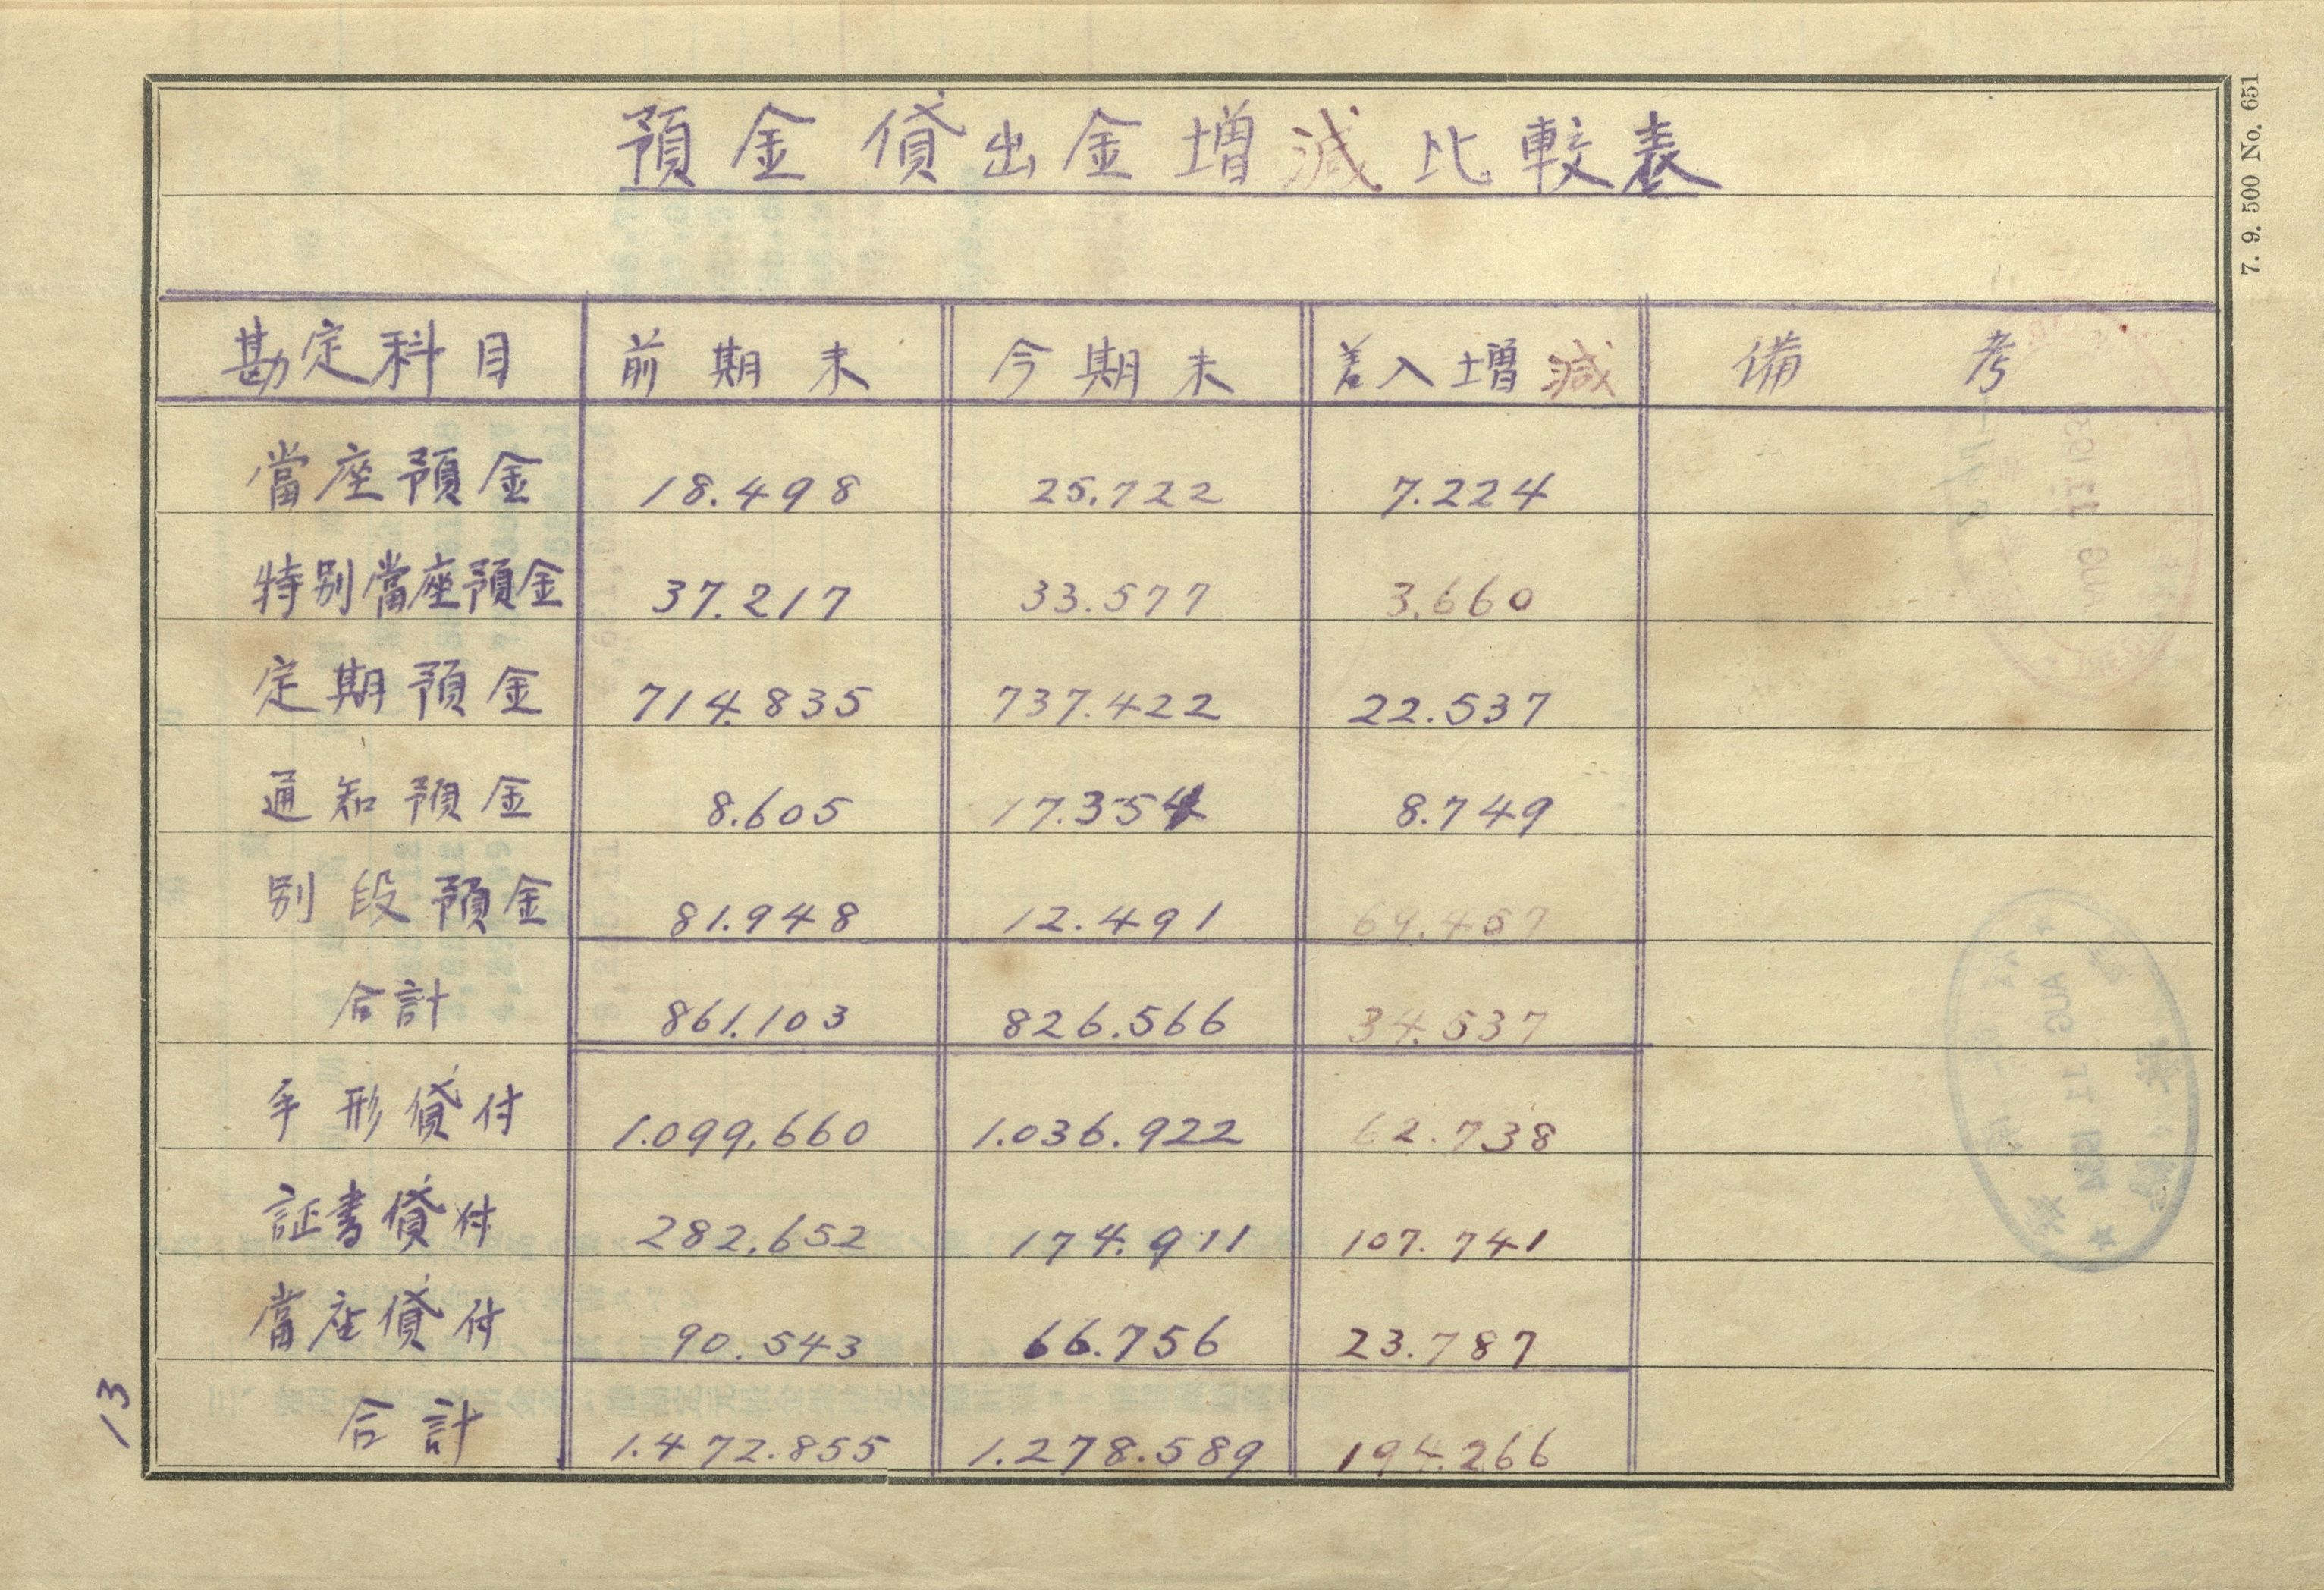 預金貸出金増減比較表
勘定科目 前期末 今期末 差入増減 備考
當座預金 18.498 25.722 7.224
特別當座預金 37.217 33.577 3.660
定期預金 714.835 737.422 22.537
通知預金 8.605 17.354 8.749
別段預金 81.948 12.491 69.457
合計 861.103 826.566 34.537
手形貸付 1.099.660 1.036.922 62.738
証書貸付 282.652 174.911 107.741
當座貸付 90.543 66.756 23.787
合計 1.472.855 1.278.589 194.266
13
7. 9. 500 No. 651